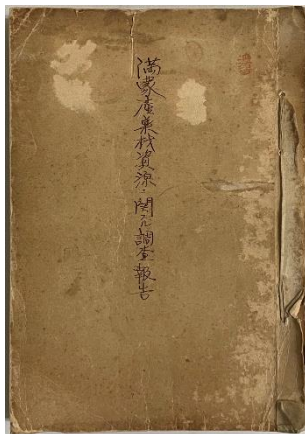 満蒙産薬材資源ニ関スル調査報告